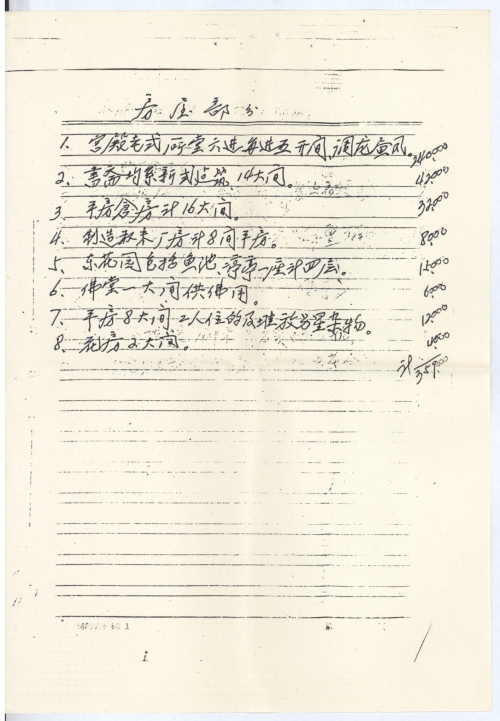 房屋部分
1、宫殿老式厅堂六进每进五开间,调龙画凤。240000
2、書斋均系新式造筑、14大间。42000
3、平房倉房计16大间。32000
4、制造秋来厂房计8间平房。8000
5、东花园包括魚池、亭一座计四层。15000
6、佛堂一大间供佛用。6000
7、平房8大间工人住的及堆放另星杂物。12000
8、花房2大间。4000
计359000
1